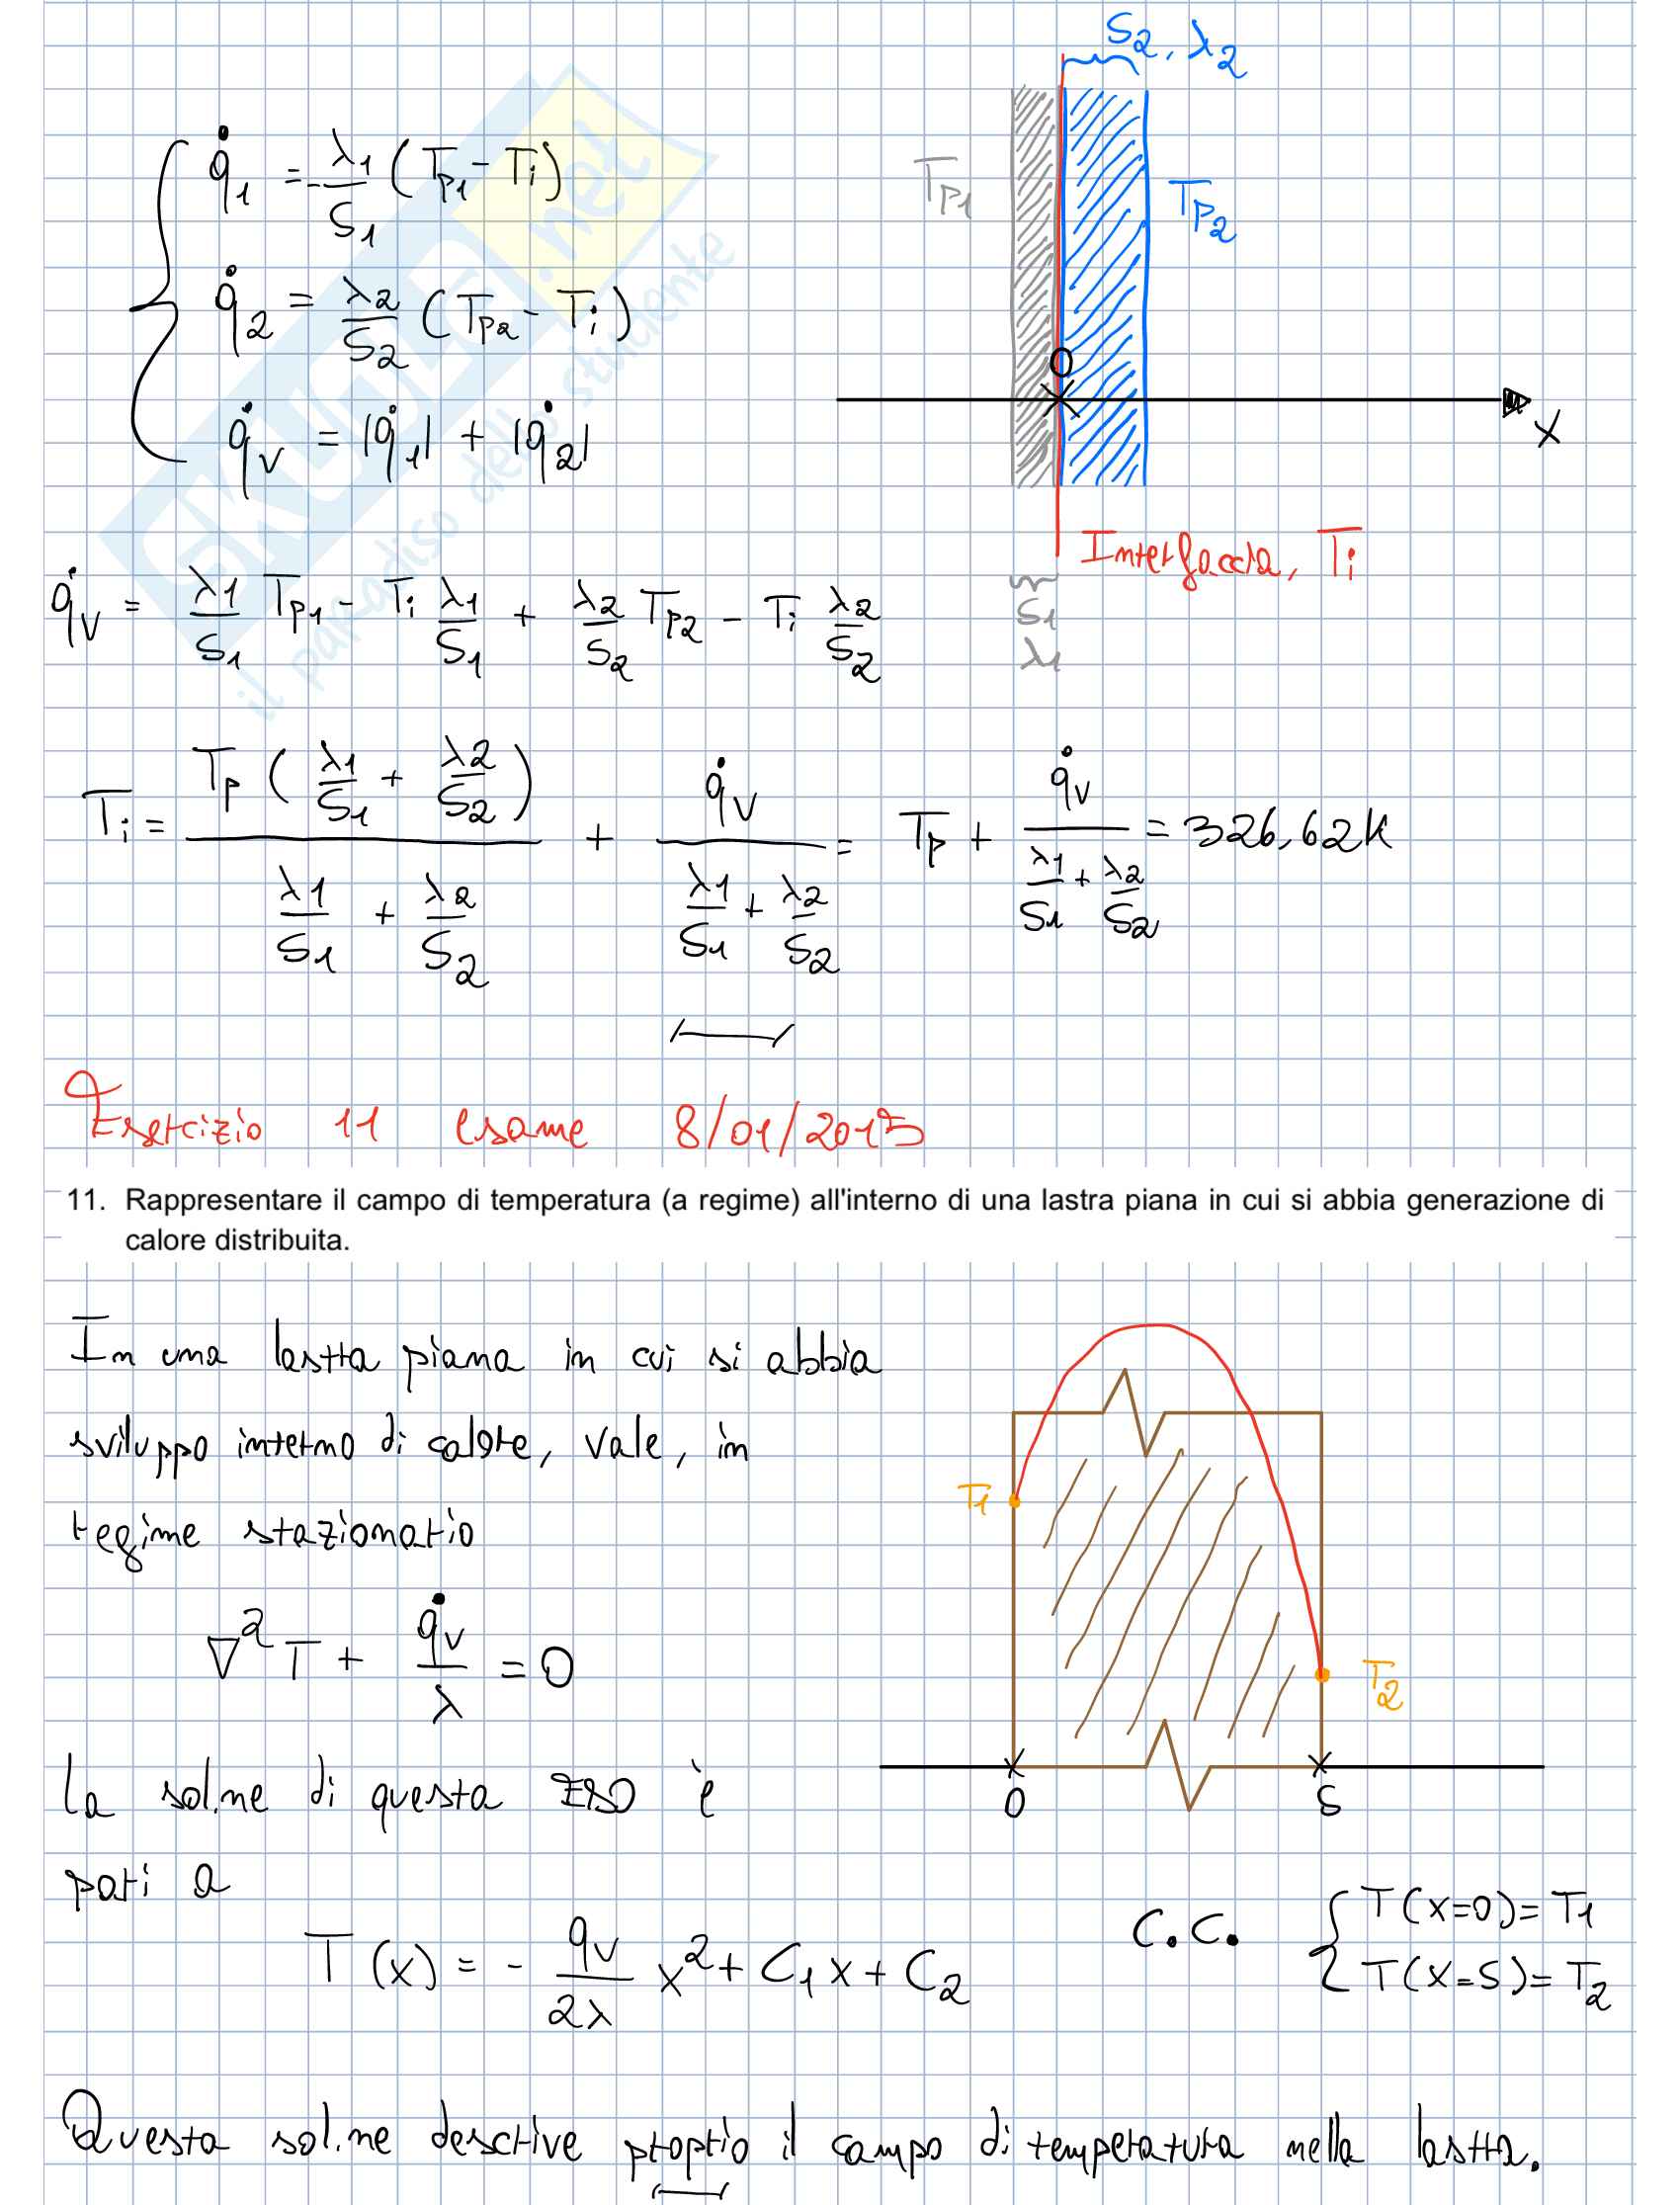 S2, λ2
q̇1 = -λ1/S1 (Tp1 - Ti)
Tp1
Tp2
q̇2 = λ2/S2 (Tp2 - Ti)
0
x
q̇v = |q̇1| + |q̇2|
Interfaccia, Ti
S1
λ1
q̇v = λ1/S1 Tp1 - Ti λ1/S1 + λ2/S2 Tp2 - Ti λ2/S2
Ti = Tp (λ1/S1 + λ2/S2) / (λ1/S1 + λ2/S2) + q̇v / (λ1/S1 + λ2/S2) = Tp + q̇v / (λ1/S1 + λ2/S2) = 326,62K
SKUOLA.net
il paradiso dello studente
Esercizio 11 esame 8/01/2015
11. Rappresentare il campo di temperatura (a regime) all'interno di una lastra piana in cui si abbia generazione di
calore distribuita.
In una lastra piana in cui si abbia
sviluppo interno di calore, vale, in
regime stazionario
T1
∇²T + q̇v/λ = 0
T2
La sol.ne di questa EDO è
0
S
pari a
T(x) = - qv/2λ x² + C1x + C2
C.C. { T(x=0) = T1
T(x=S) = T2
Questa sol.ne descrive proprio il campo di temperatura nella lastra.